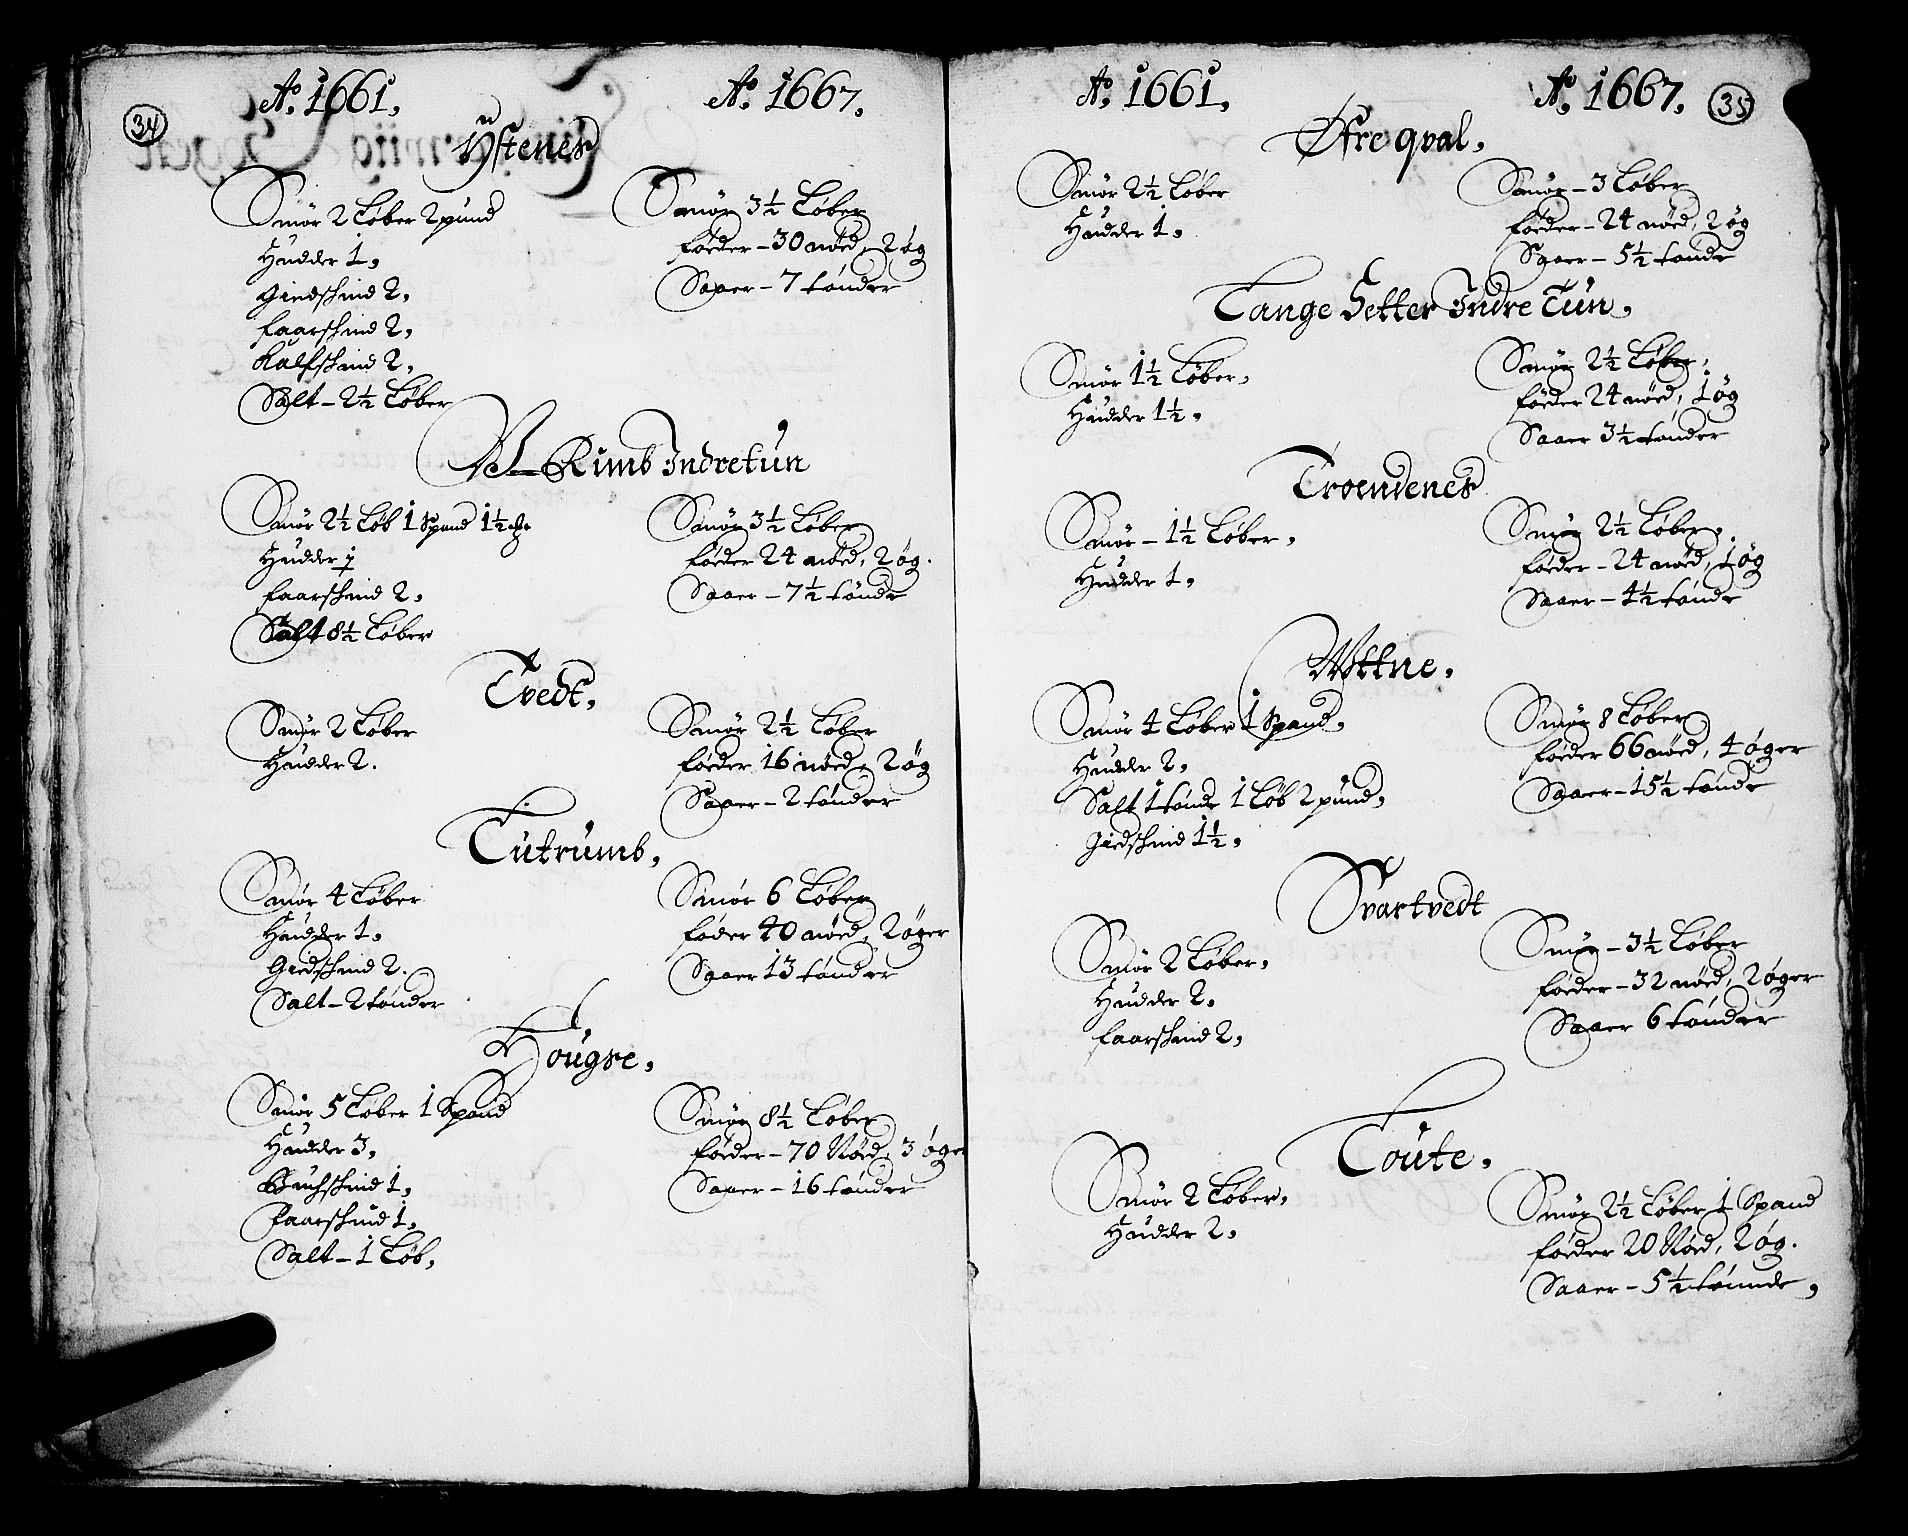 34
Aº. 1661.
Aº. 1667.
Ÿstenes
Smör 2 Løber 2 pund
Hudder 1.
Giedschind 2.
faarschind 2.
Kalfschind 2.
Salt - 2½ Løber
Smör 3½ Løber
föeder - 30 nöed, 2 øg
Saaer - 7 tønder
Rimb Indretun
Smör 2½ Løb 1 Spand 1½
Hudder 1
faarschind 2.
Salt 8½ Løber
Smör 3½ Løber
föeder 24 nöed, 2 øg.
Saaer - 7½ tønde
Tvedt.
Smör 2 Løber
Hudder 2.
Smör 2½ Løber
föeder 16 nöed, 2 øg
Saaer - 2 tønder
Tutrumb.
Smör 4 Løber
Hudder 1.
Giedschind 2.
Salt - 2 tønder
Smör 6 Løber
föder 40 nöed, 2 øger
Saaer 13 tønder
Hougse.
Smör 5 Løber 1 Spand
Hudder 3.
Buchschind 1.
faarschind 1.
Salt - 1 Løb.
Smör 8½ Løber
föeder - 70 Nöed, 3 øger
Saaer - 16 tønder
35
Aº. 1661.
Aº. 1667.
Øfre qval.
Smör 2½ Løber
Hudder 1.
Smör - 3 Løber
föeder - 24 nöed, 2 øg
Saaer - 5½ tønde
Tange Setter Indre Tun.
Smör 1½ Løber.
Hudder 1½.
Smör 2½ Løber.
föeder 24 nöed, 1 øg
Saaer 3½ tønder
Troendenes
Smör - 1½ Løber.
Hudder 1.
Smör 2½ Løber.
föeder - 24 nöed, 1 øg
Saaer - 4½ tønde
Wttne.
Smör 4 Løber 1 Spand.
Hudder 2.
Salt 1 tønde 1 Løb 2 pund.
Giedschind 1½.
Smör 8 Løber
föeder 66 nöed, 4 øger
Saaer - 15½ tønde
Svartvedt
Smör 2 Løber.
Hudder 2.
faarschind 2.
Smör - 3½ Løber
föeder - 32 nöed, 2 øger
Saaer 6 tønder
Toute.
Smör 2 Løber.
Hudder 2.
Smör 2½ Løber 1 Spand
föeder 20 Nöed, 2 øg.
Saaer - 5½ tønnde.